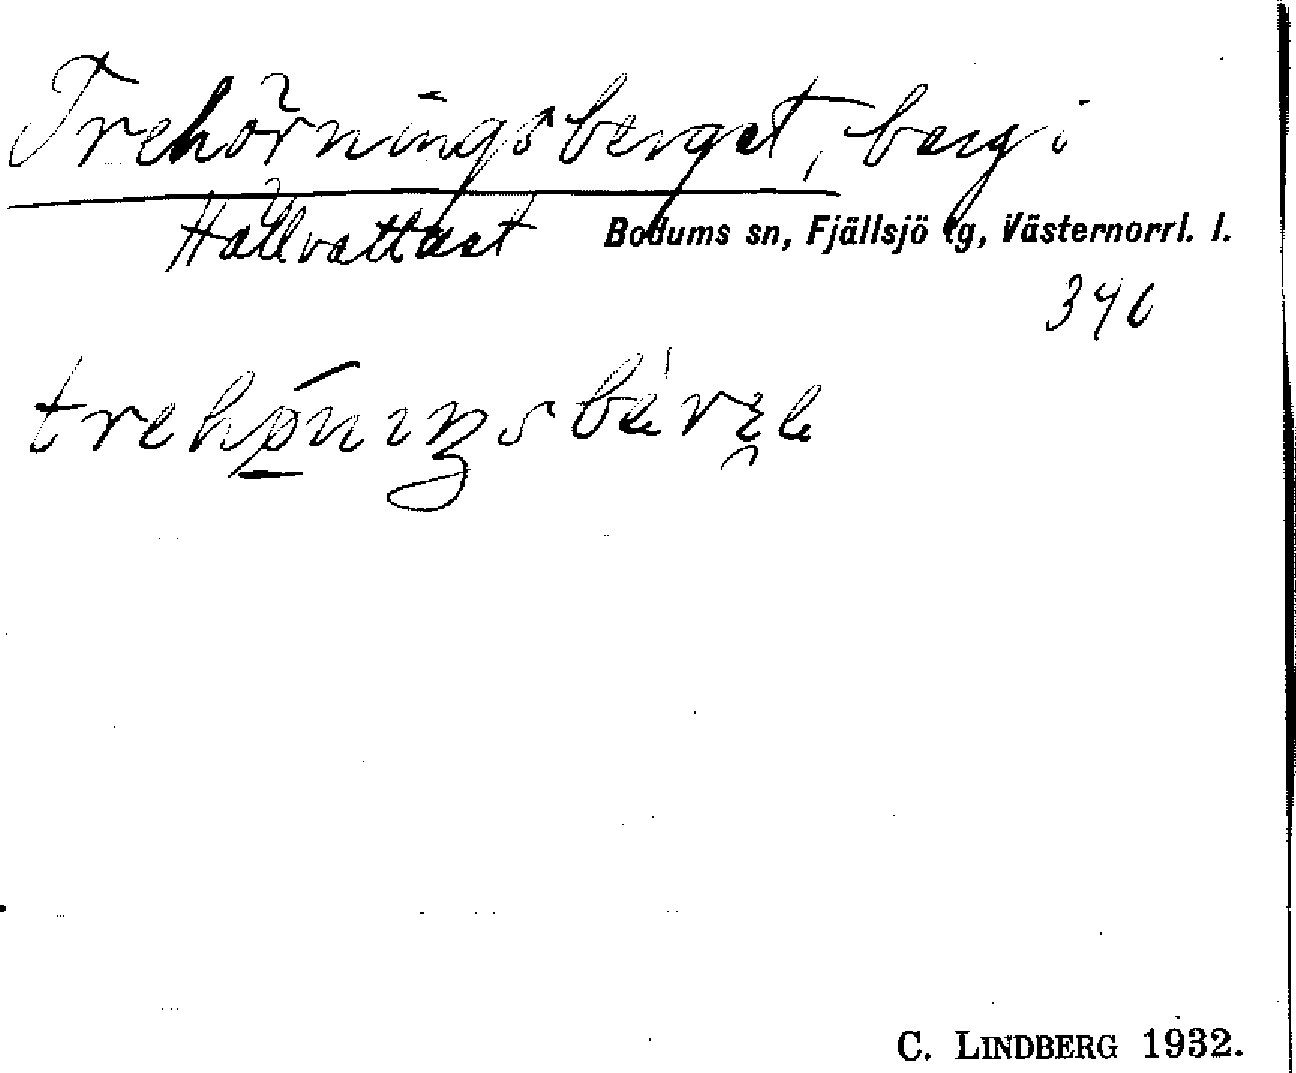 Trehörningsberget, berg i
Hällvattnet Bodums sn, Fjällsjö tg, Västernorrl. l.
390
C. LINDBERG 1932.